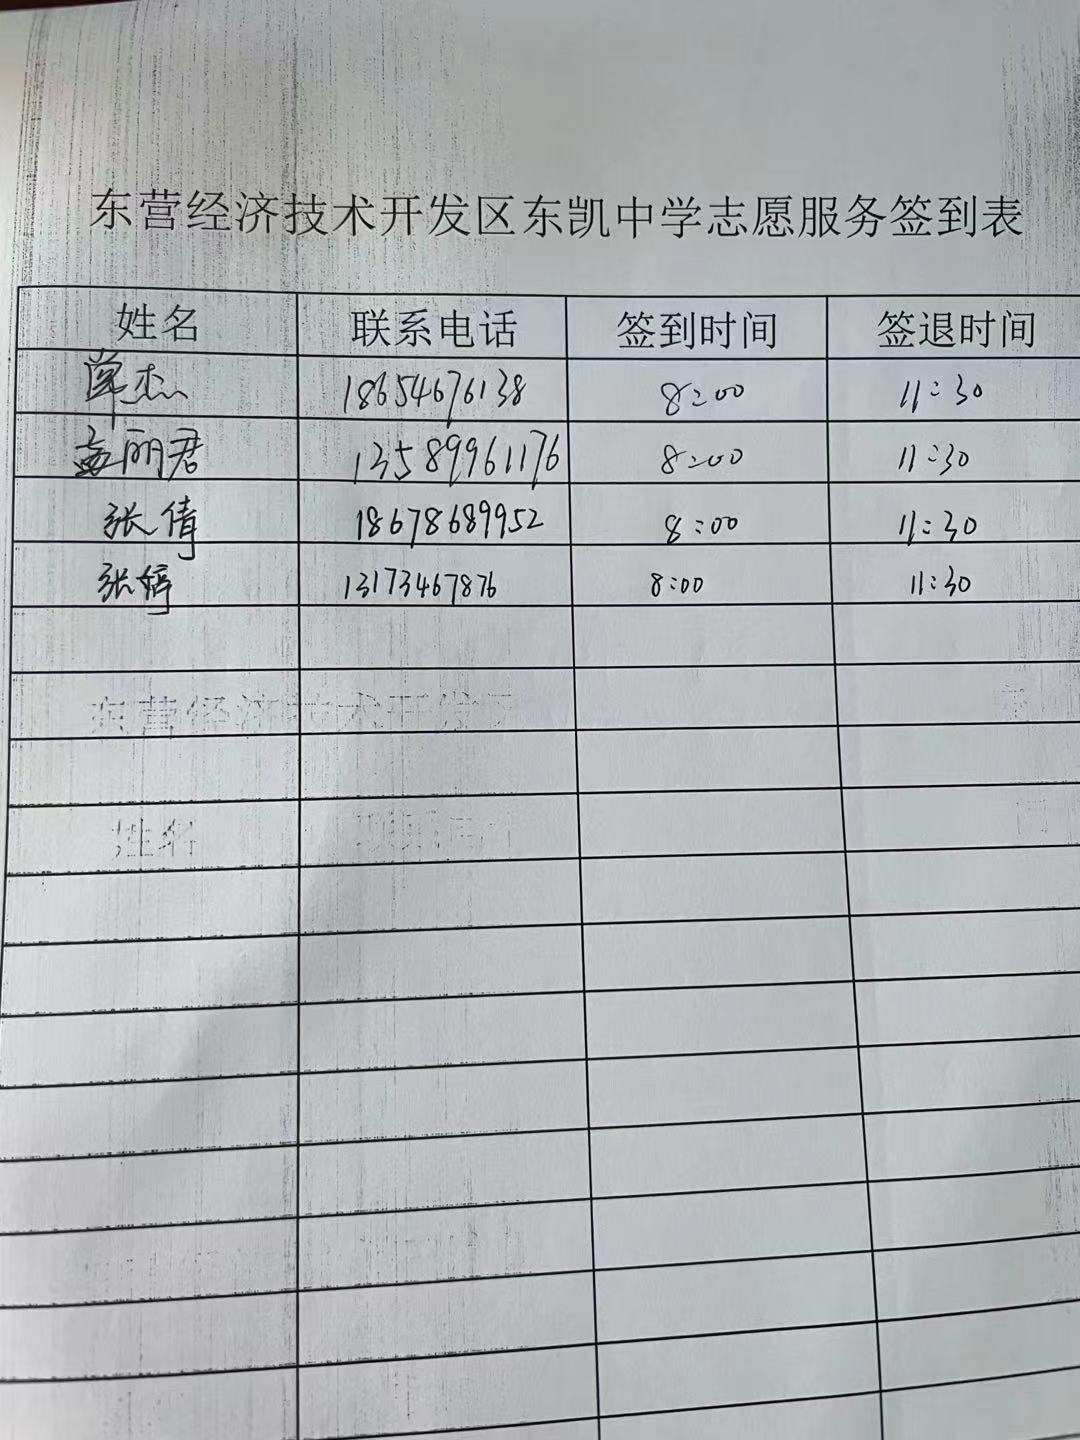 东营经济技术开发区东凯中学志愿服务签到表
姓名 联系电话 签到时间 签退时间
单杰 18654676138 8:00 11:30
孟丽君 13589961176 8:00 11:30
张倩 18678689952 8:00 11:30
张婷 13173467876 8:00 11:30
东营经济技术开发区
姓名